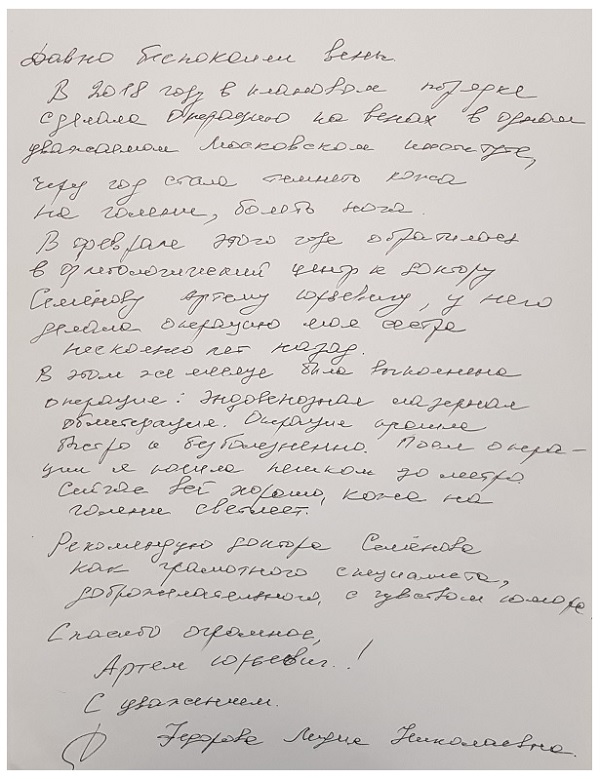 Давно беспокоили вены.
В 2018 году в плановом порядке
сделала операцию на венах в одном
уважаемом Московском институте,
через год стала темнеть кожа
на голени, болеть нога.
В феврале этого года обратилась
в флебологический центр к доктору
Семёнову Артему Юрьевичу, у него
делала операцию моя сестра
несколько лет назад.
В этом же месяце была выполнена
операция: эндовенозная лазерная
облитерация. Операция прошла
быстро и безболезненно. После опера-
ции я пошла пешком до метро
Сейчас всё хорошо, кожа на
голени светлеет.
Рекомендую доктора Семёнова
как грамотного специалиста,
доброжелательного, с чувством юмора
Спасибо огромное,
Артем Юрьевич..!
С уважением.
Федорова Лидия Николаевна.